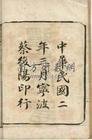 中華民國二
年三月寧波
蔡後陽印行